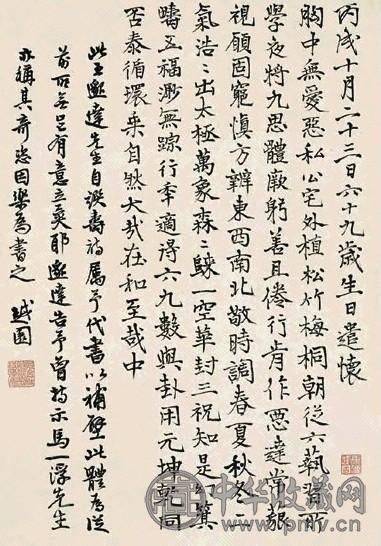 丙戌十月二十三日六十九歲生日遣懷
胸中無愛惡私公宅外植松竹梅桐朝從六藝習所
學夜將九思體厥躬善且倦行肯作惡達常艱
視願固窮慎方辨東西南北敬時調春夏秋冬二
氣浩〻出太極萬象森〻歸一空華封三祝知是幻箕
疇五福渺無踪行年適得六九數與卦用元坤乾同
否泰循環來自然大哉在和至哉中
此王邈達先生自撰壽詩屬予代書以補壁此體為從
前所無豈有意立異耶邈達告予曾持示馬一浮先生
亦稱其奇恣因樂為書之 越園
中华收藏网
www.pmv.cn